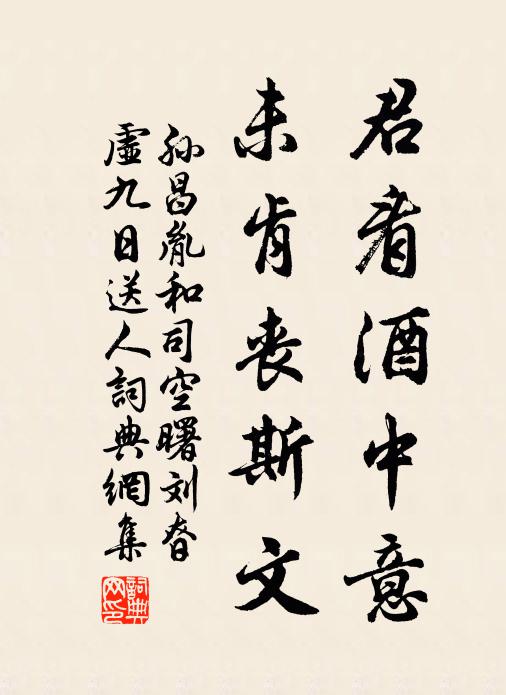 君看酒中意
未肯喪斯文
孙昌胤和司空曙刘眘
虛九日送人詞典網集
詞典
网印